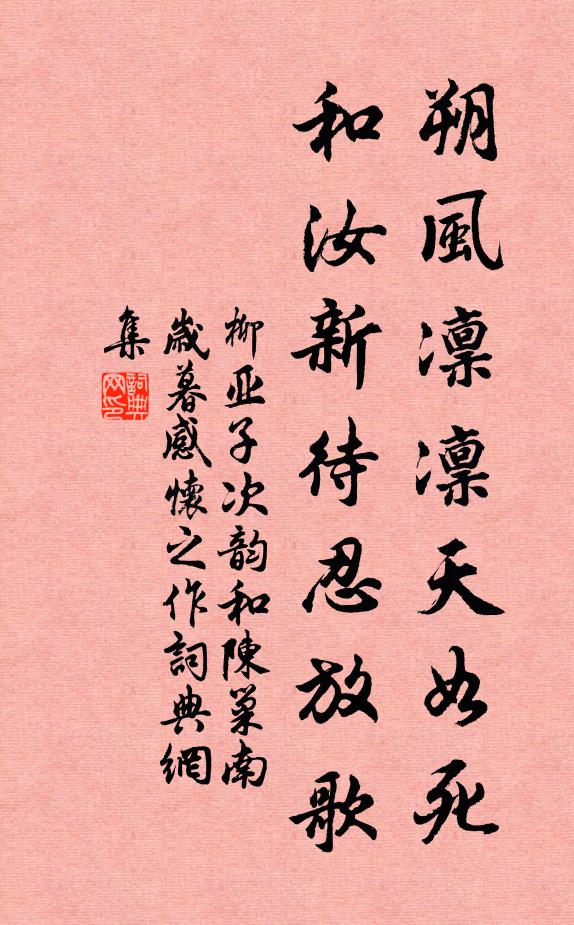 朔風凜凜天如死
和汝新待忍放歌
柳亚子次韵和陳巢南
歲暮感懷之作詞典網
集
詞典
网印